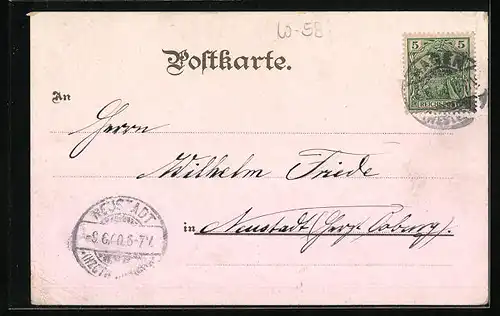 W-58
Postkarte.
5 5
REICHSPOST
An
Herrn
Wilhelm Friede
in Neustadt (Herz. Coburg).
NEUSTADT